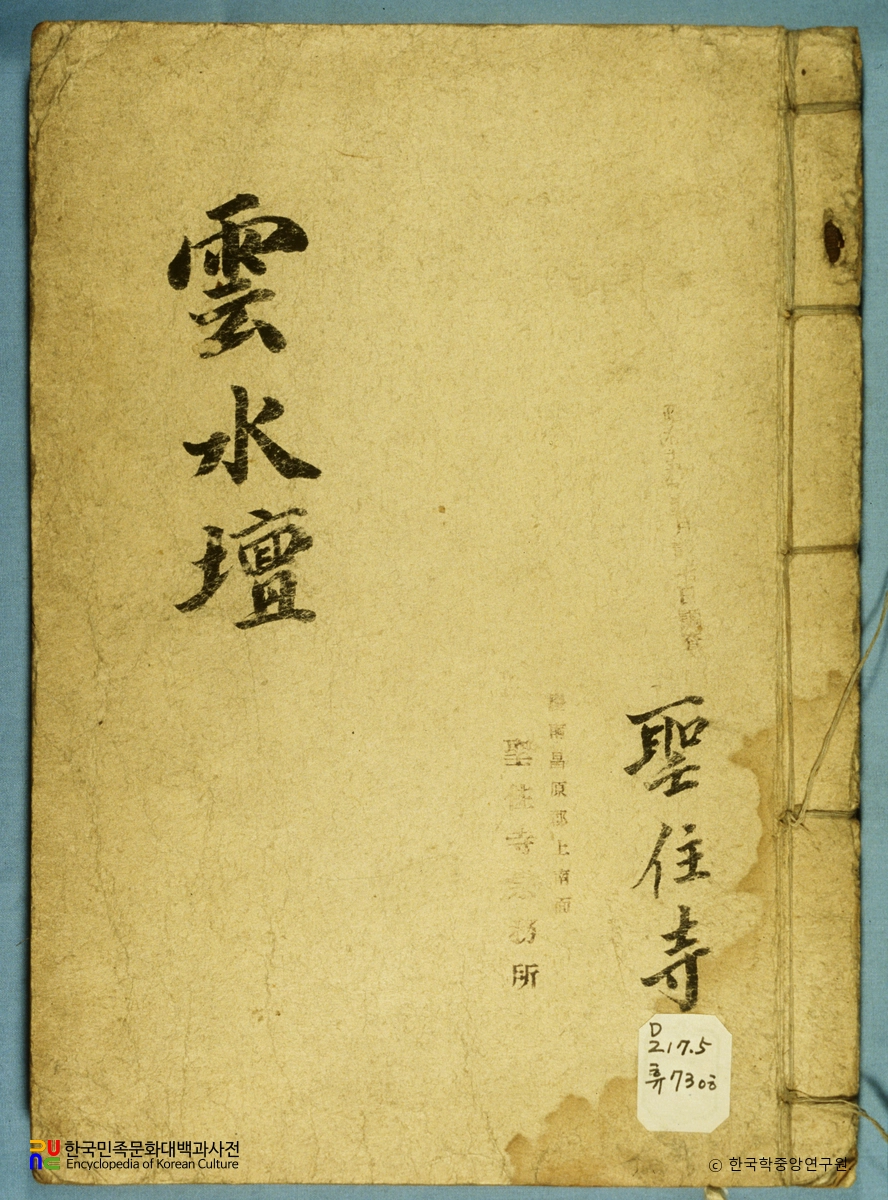 雲水壇
聖住寺
昌原郡上南面
聖住寺 務所
D
217.5
휴73ㅇㅎ
한국민족문화대백과사전
Encyclopedia of Korean Culture
ⓒ 한국학중앙연구원